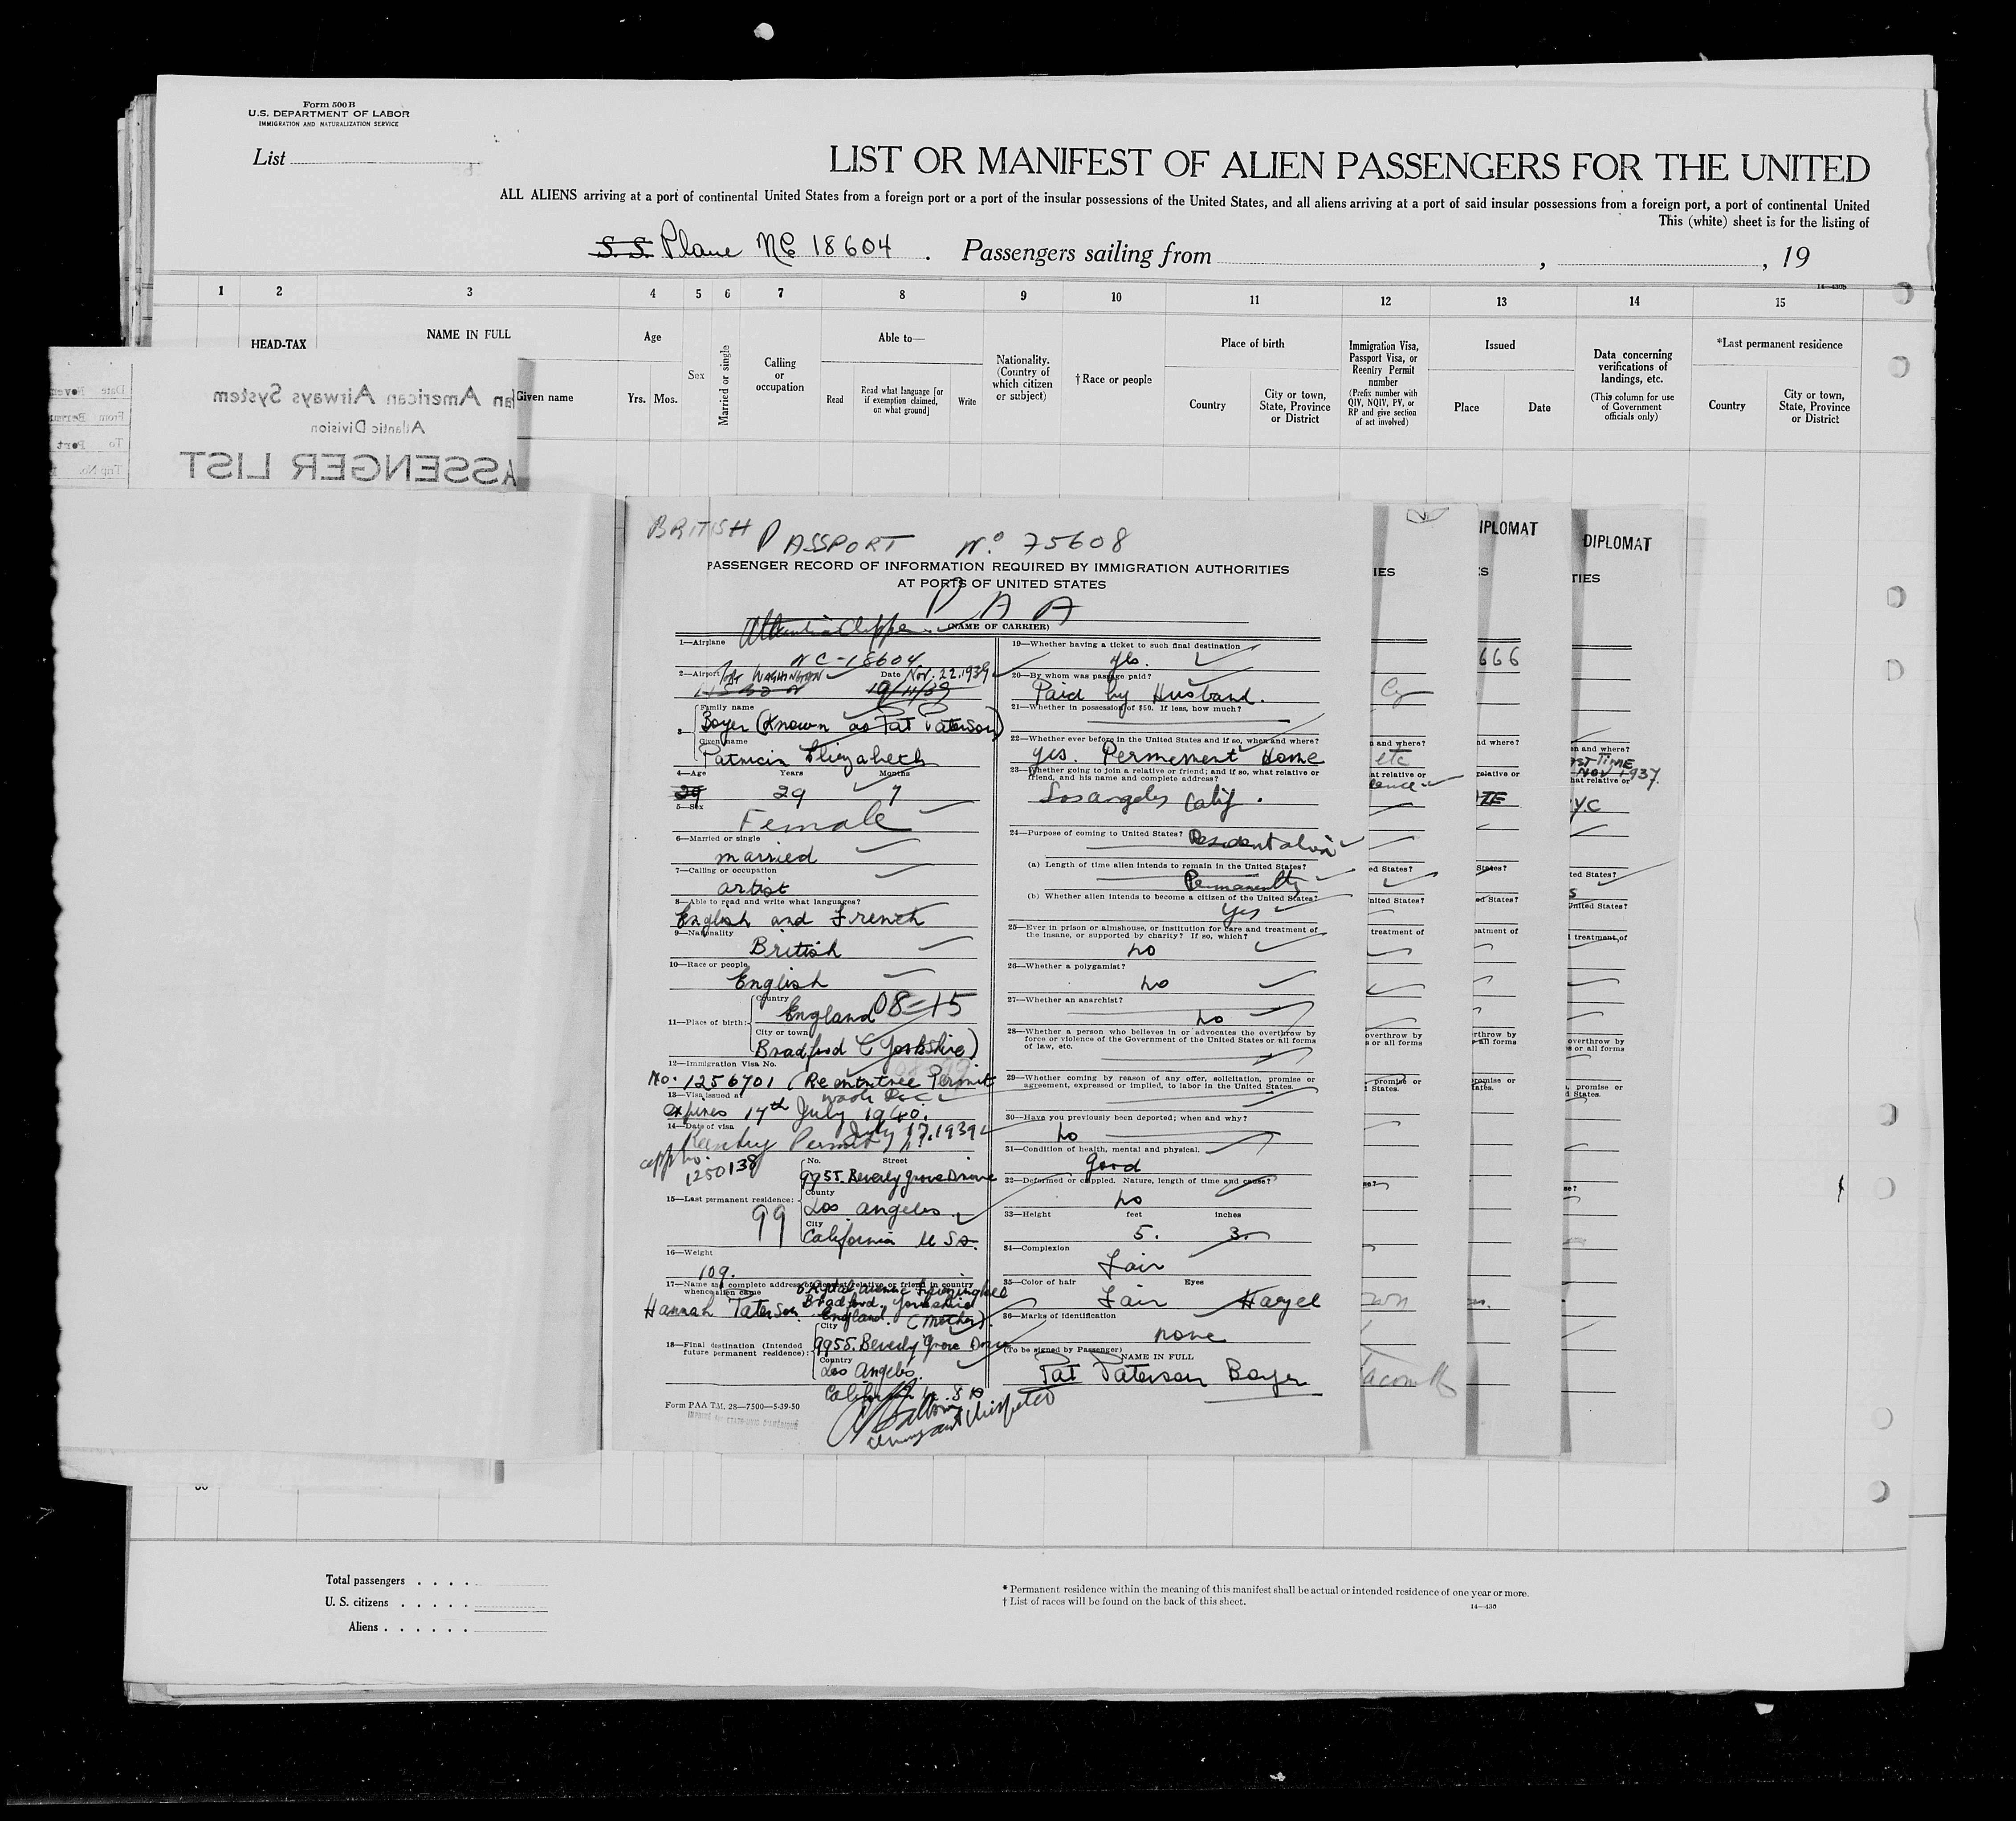 Form 500 B
U.S. DEPARTMENT OF LABOR
IMMIGRATION AND NATURALIZATION SERVICE
List
LIST OR MANIFEST OF ALIEN PASSENGERS FOR THE UNITED
ALL ALIENS arriving at a port of continental United States from a foreign port or a port of the insular possessions of the United States, and all aliens arriving at a port of said insular possessions from a foreign port, a port of continental United
This (white) sheet is for the listing of
S. S. Plane NC 18604 . Passengers sailing from , , 19
14—430b
1 2 3 4 5 6 7 8 9 10 11 12 13 14 15
HEAD-TAX
NAME IN FULL
Given name
Age
Yrs. Mos.
Sex
Married or single
Calling or occupation
Able to—
Read
Read what language [or if exemption claimed, on what ground]
Write
Nationality. (Country of which citizen or subject)
† Race or people
Place of birth
Country
City or town, State, Province or District
Immigration Visa, Passport Visa, or Reentry Permit number
(Prefix number with QIV, NQIV, PV, or RP and give section of act involved)
Issued
Place
Date
Data concerning verifications of landings, etc.
(This column for use of Government officials only)
*Last permanent residence
Country
City or town, State, Province or District
an American Airways System
Atlantic Division
ASSENGER LIST
Date Novem
From Bermu
To Port
Trip No.
BRITISH PASSPORT No 75608
PASSENGER RECORD OF INFORMATION REQUIRED BY IMMIGRATION AUTHORITIES
AT PORTS OF UNITED STATES
P A A
(NAME OF CARRIER)
1—Airplane
NC-18604
2—Airport Port WASHINGTON Date Nov. 22, 1939
19/11/39
3—
Family name
Boyer (Known as Pat Paterson)
Given name
Patricia Elizabeth
4—Age Years Months
29 29 7
5—Sex
Female
6—Married or single
married
7—Calling or occupation
artist
8—Able to read and write what languages?
English and French
9—Nationality
British
10—Race or people
English
11—Place of birth:
Country
England 08-15
City or town
Bradford (Yorkshire)
12—Immigration Visa No.
No. 1256701 (Reentntree Permit
13—Visa issued at
expires 17th July 1940.
14—Date of visa July 17, 1939
Reentry Permit
app no.
1250138
15—Last permanent residence:
No. Street
9955. Beverly Grove Drive
County
Los Angeles
City
California U S A.
99
16—Weight
109.
17—Name and complete address of nearest relative or friend in country
whence alien came
Hannah Paterson
Bradford, Yorkshire
England. (Mother).
18—Final destination (Intended
future permanent residence):
City
9955. Beverly Grove Drive
Country
Los Angeles.
Form PAA TM. 28—7500—5-39-50
19—Whether having a ticket to such final destination
yes.
20—By whom was passage paid?
Paid by Husband.
21—Whether in possession of $50. If less, how much?
22—Whether ever before in the United States and if so, when and where?
yes. Permenent Home
23—Whether going to join a relative or friend; and if so, what relative or
friend, and his name and complete address?
Los angeles Calif.
24—Purpose of coming to United States? Resident alien
(a) Length of time alien intends to remain in the United States?
Permanently
(b) Whether alien intends to become a citizen of the United States?
yes
25—Ever in prison or almshouse, or institution for care and treatment of
the insane, or supported by charity? If so, which?
no
26—Whether a polygamist?
no
27—Whether an anarchist?
no
28—Whether a person who believes in or advocates the overthrow by
force or violence of the Government of the United States or all forms
of law, etc.
29—Whether coming by reason of any offer, solicitation, promise or
agreement, expressed or implied, to labor in the United States.
30—Have you previously been deported; when and why?
no
31—Condition of health, mental and physical.
good
32—Deformed or crippled. Nature, length of time and cause?
no
33—Height feet inches
5. 3.
34—Complexion
Fair
35—Color of hair Eyes
Fair Hazel
36—Marks of identification
none
(To be signed by Passenger)
NAME IN FULL
Pat Paterson Boyer
IES
n and where?
etc
at relative or
ed States?
nited States?
treatment of
overthrow by
s or all forms
promise or
States.
IPLOMAT
666
nd where?
relative or
States?
ed States?
eatment of
rthrow by
all forms
promise or
tates.
DIPLOMAT
TIES
en and where?
NOV 1937.
hat relative or
Y.C
ted States?
United States?
treatment of
overthrow by
s or all forms
promise or
d States.
Total passengers . . . .
U. S. citizens . . . . .
Aliens . . . . . .
* Permanent residence within the meaning of this manifest shall be actual or intended residence of one year or more.
† List of races will be found on the back of this sheet.
14—430